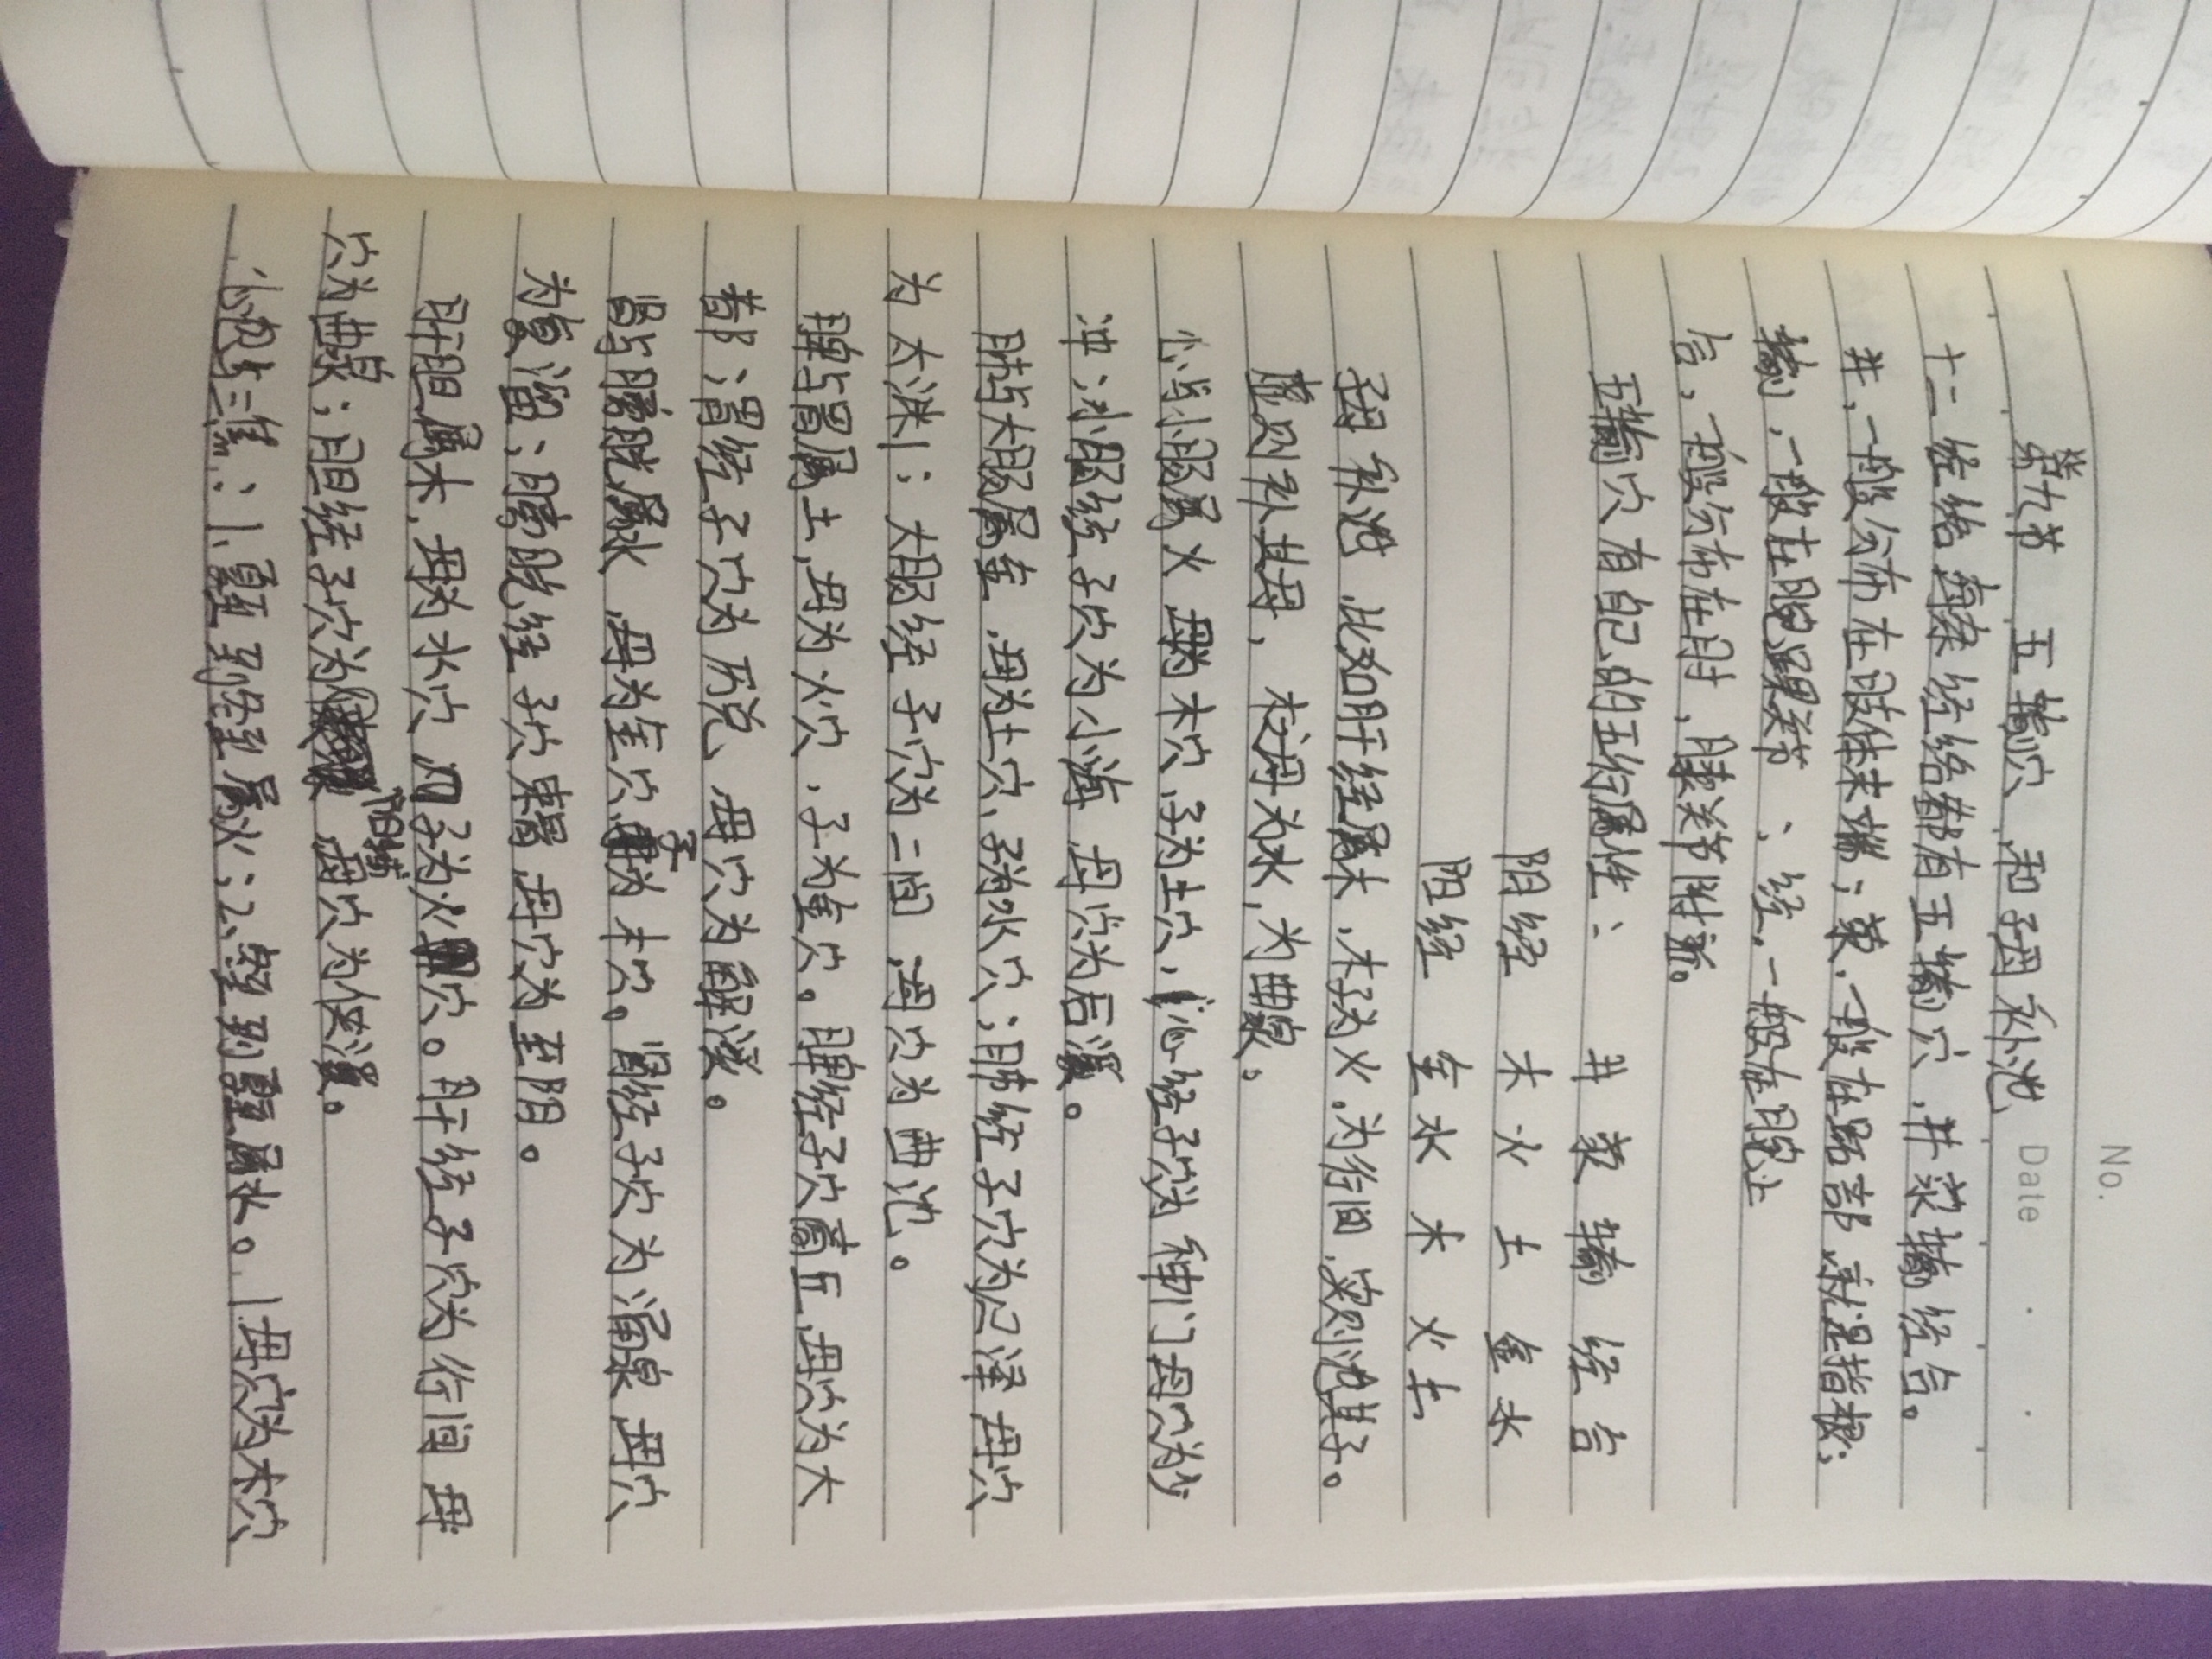 No.
Date
第九节 五输穴和子母补泄
十二经络每条经络都有五输穴,井荥输经合。
井,一般分布在肢体末端;荥,一般在路部,就是指根;
输,一般在腕踝关节、经,一般在腕上
合,一般分布在肘、膝关节附近。
五输穴有自己的五行属性: 井 荥 输 经 合
阴经 木 火 土 金 水
阳经 金 水 木 火 土
子母补泄,比如肝经属木,木子为火,为行间,实则泄其子。
虚则补其母,木之母为水,为曲泉。
心与小肠属火 母为木穴,子为土穴,心经子穴为神门 母穴为少
冲;小肠经子穴为小海 母穴为后溪。
肺与大肠属金,母为土穴,子为水穴;肺经子穴为尺泽 母穴
为太渊;大肠经子穴为二间,母穴为曲池。
脾与胃属土,母为火穴,子为金穴。脾经子穴商丘,母穴为大
都;胃经子穴为厉兑,母穴为解溪。
肾与膀胱属水,母为金穴,子为木穴。肾经子穴为涌泉 母穴
为复溜;膀胱经子穴束骨 母穴为至阴。
肝胆属木,母为水穴 子为火穴。肝经子穴为行间 母
穴为曲泉;胆经子穴为阳辅 母穴为侠溪。
心包与三焦:1、夏至到冬至属火;2、冬至到夏至属水。1.母穴为木穴